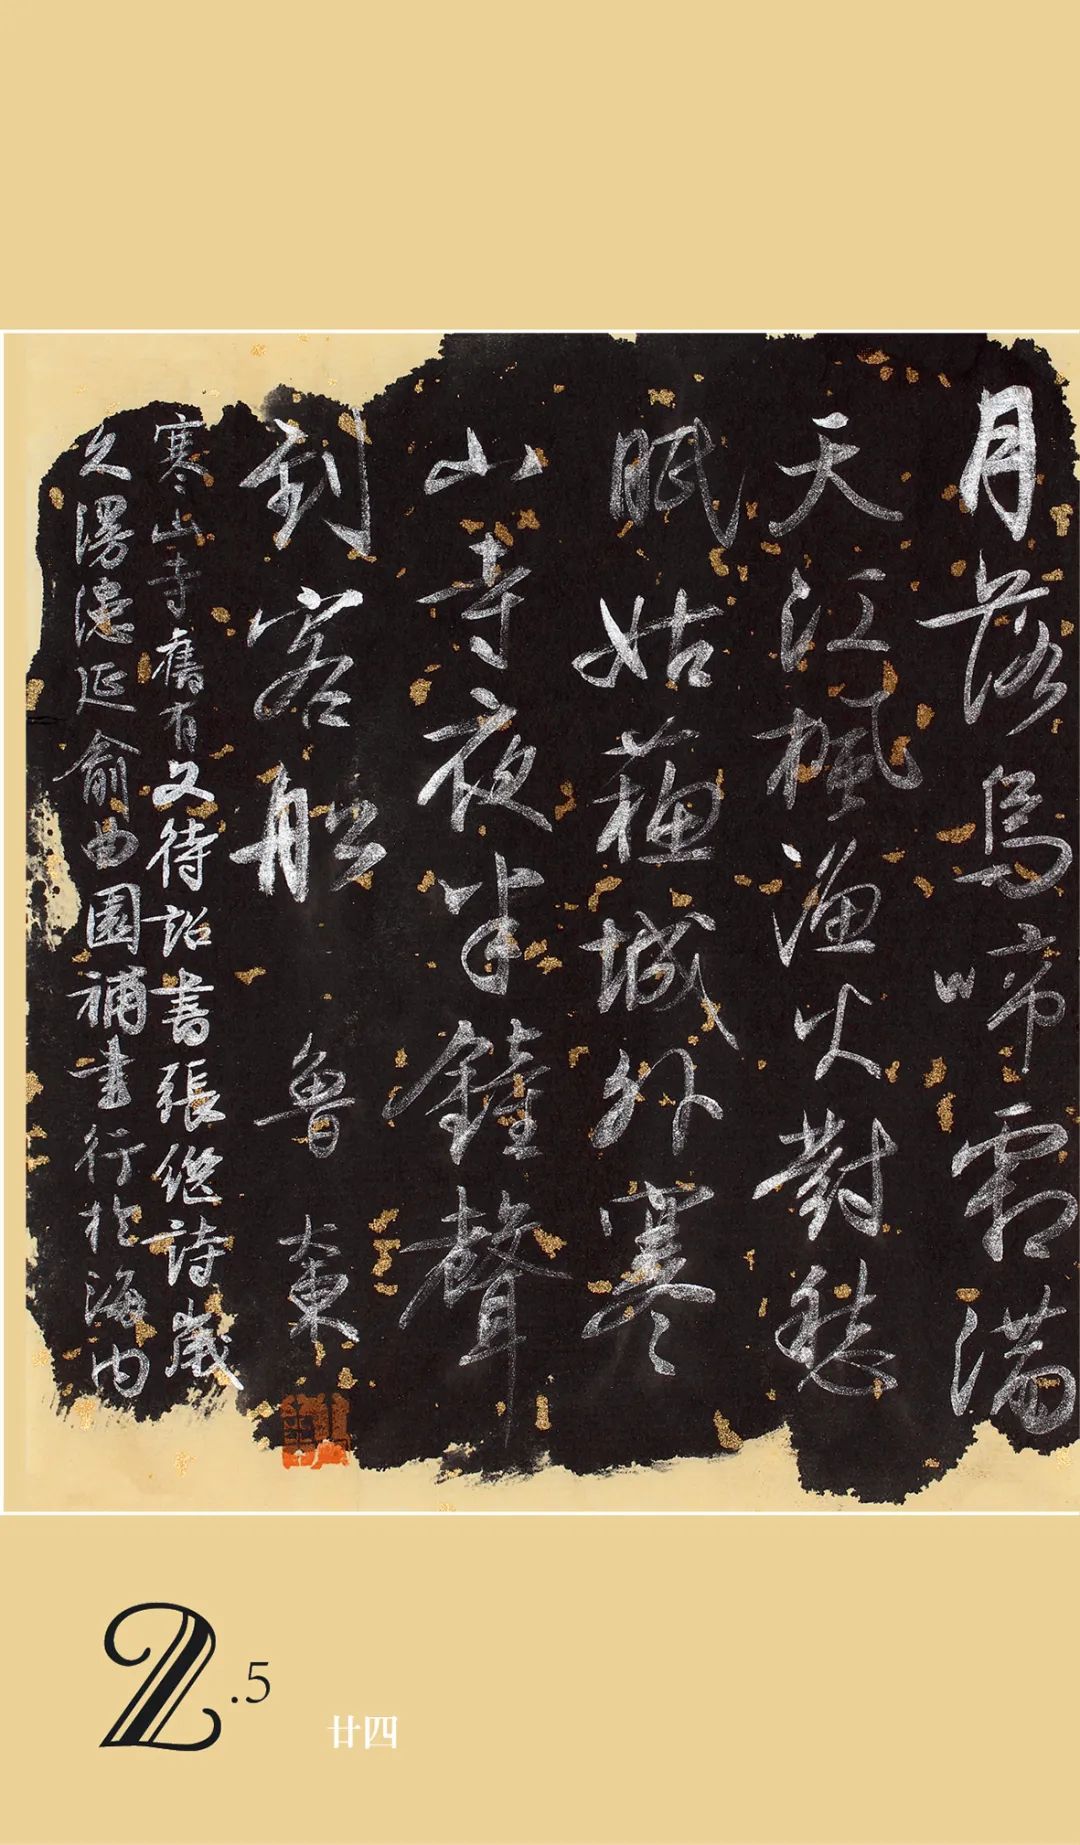 月落烏啼霜滿
天江楓漁火對愁
眠姑蘇城外寒
山寺夜半鐘聲
到客船 魯大東
寒山寺舊有文待詔書張繼詩歲
久漫漶延俞曲園補書行於海内
2.5
廿四